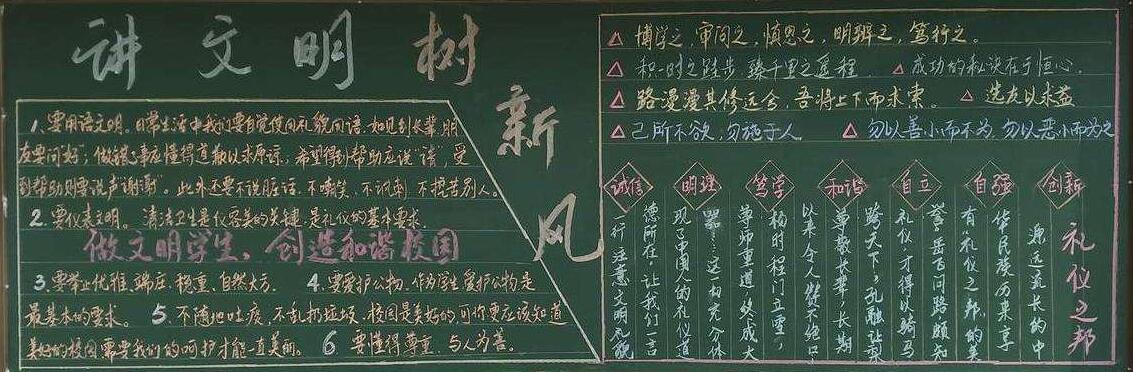 讲文明树新风
1、要用语文明。日常生活中我们要自觉使用礼貌用语，如见到长辈，朋
友要问"好"；做错了事应懂得道歉以求原谅；希望得到帮助应说"请"，受
到帮助则要说声"谢谢"。此外还要不说脏话、不嘲笑、不讽刺、不挖苦别人。
2、要仪表文明。清洁卫生是仪容美的关键，是礼仪的基本要求。
做文明学生，创造和谐校园
3、要举止优雅、端庄、稳重、自然大方。 4、要爱护公物，作为学生爱护公物是
最基本的要求。 5、不随地吐痰，不乱扔垃圾，校园是美好的，可你更应该知道
美好的校园需要我们的呵护才能一直美丽。 6 要懂得尊重，与人为善。
△ 博学之，审问之，慎思之，明辨之，笃行之。
△ 积一时之跬步 臻千里之遥程 △ 成功的秘诀在于恒心。
△ 路漫漫其修远兮，吾将上下而求索。 △ 选友以求益
△ 己所不欲，勿施于人 △ 勿以善小而不为，勿以恶小而为之
诚信 明理 笃学 和谐 自立 自强 创新
礼仪之邦
源远流长的中
华民族历来享
有"礼仪之邦"的美
誉：岳飞问路，颇知
礼仪，才得以骑马
跨天下；孔融让梨
尊敬长辈，长期
以来令人赞不绝口
杨时"程门立雪"，
尊师重道，终成大
器……这一切充分体
现了中国人的礼仪道
德所在，让我们一言
一行注意文明礼貌